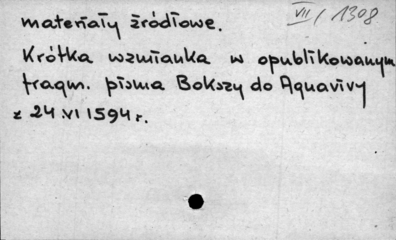 VII / 1308
materiały źródłowe.
Krótka wzmianka w opublikowanym
fragm. pisma Bokszy do Aquavivy
z 24 VI 1594 r.